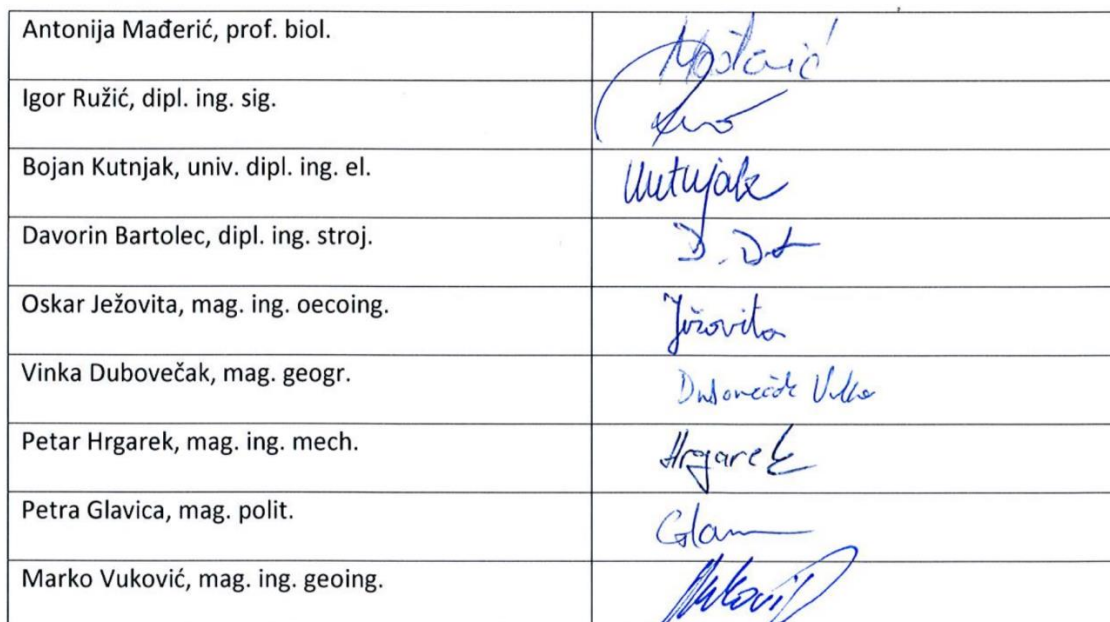 Antonija Mađerić, prof. biol.
Igor Ružić, dipl. ing. sig.
Bojan Kutnjak, univ. dipl. ing. el.
Kutnjak
Davorin Bartolec, dipl. ing. stroj.
Oskar Ježovita, mag. ing. oecoing.
Ježovita
Vinka Dubovečak, mag. geogr.
Petar Hrgarek, mag. ing. mech.
Hrgarek
Petra Glavica, mag. polit.
Marko Vuković, mag. ing. geoing.